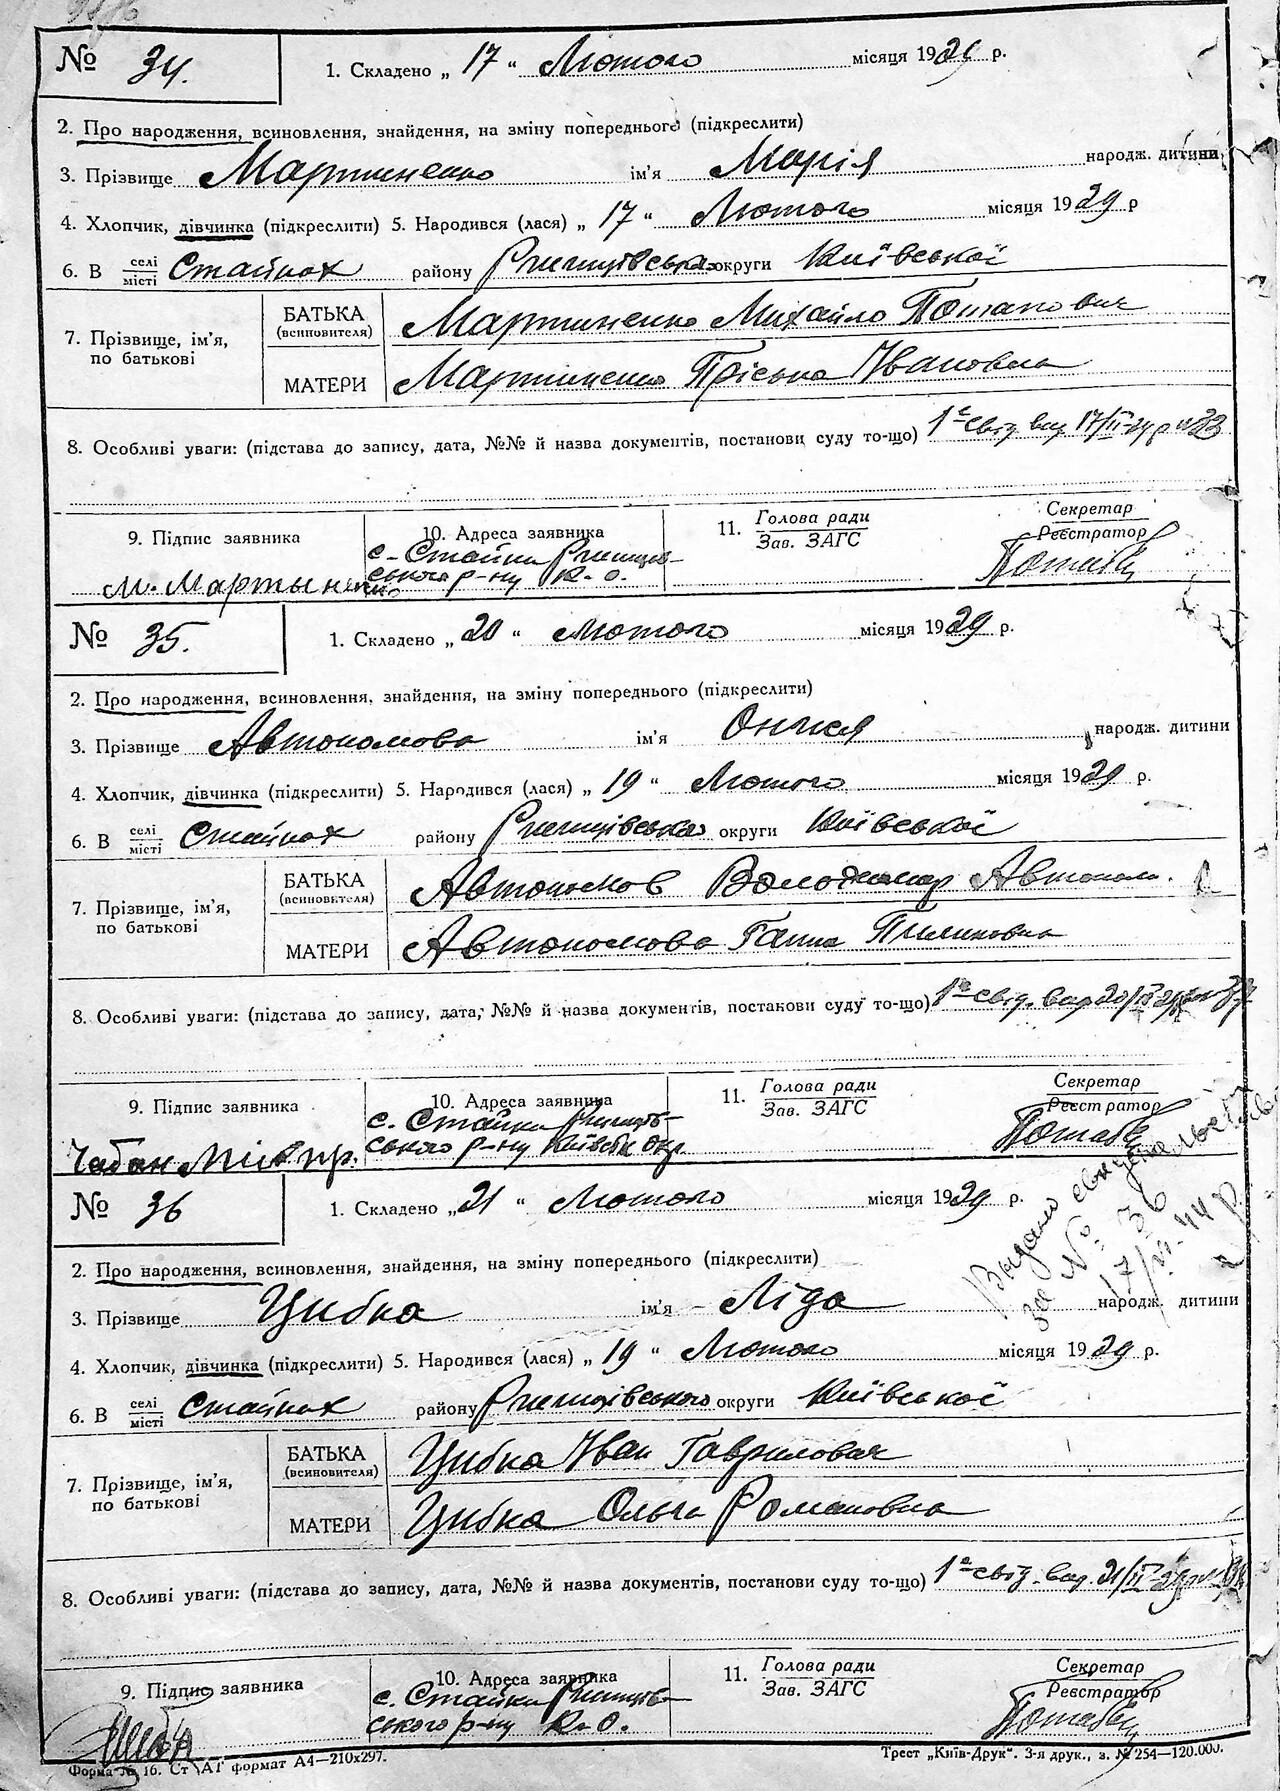 № 34. 1. Складено „ 17 “ Лютого місяця 1929 р.
2. Про народження, всиновлення, знайдення, на зміну попереднього (підкреслити)
3. Прізвище Мартиненко ім'я Марія народж. дитини
4. Хлопчик, дівчинка (підкреслити) 5. Народився (лася) „ 17 “ Лютого місяця 1929 р
6. В селі місті Стайках району Ржищівська округи Київської
7. Прізвище, ім'я, по батькові
БАТЬКА (всиновителя) Мартиненко Михайло Потапович
МАТЕРИ Мартиненко Пріська Івановна
8. Особливі уваги: (підстава до запису, дата, №№ й назва документів, постанови суду то-що) 1е свід. вид. 17/II-29 р № 33
9. Підпис заявника 10. Адреса заявника 11. Голова ради Зав. ЗАГС Секретар Реєстратор
М. Мартыненко с. Стайки Ржищів-
ського р-ну К. О.
№ 35. 1. Складено „ 20 “ Лютого місяця 1929 р.
2. Про народження, всиновлення, знайдення, на зміну попереднього (підкреслити)
3. Прізвище Автономова ім'я народж. дитини
4. Хлопчик, дівчинка (підкреслити) 5. Народився (лася) „ 19 “ Лютого місяця 1929 р.
6. В селі місті Стайках району Ржищівська округи Київської
7. Прізвище, ім'я, по батькові
БАТЬКА (всиновителя) Автономов Володимир Автоном.
МАТЕРИ Автономова Ганна Пилиповна
8. Особливі уваги: (підстава до запису, дата, №№ й назва документів, постанови суду то-що) 1е свід. вид. 20/II-29
9. Підпис заявника 10. Адреса заявника 11. Голова ради Зав. ЗАГС Секретар Реєстратор
Чабан с. Стайки Ржищів-
ського р-ну Київськ. Окр.
№ 36 1. Складено „ 21 “ Лютого місяця 1929 р.
Выдано свидетельство
за № 36
17/VI-44 р.
2. Про народження, всиновлення, знайдення, на зміну попереднього (підкреслити)
3. Прізвище Цибка ім'я Ліда народж. дитини
4. Хлопчик, дівчинка (підкреслити) 5. Народився (лася) „ 19 “ Лютого місяця 1929 р.
6. В селі місті Стайках району Ржищівського округи Київської
7. Прізвище, ім'я, по батькові
БАТЬКА (всиновителя) Цибка Іван Гаврилович
МАТЕРИ Цибка Ольга Романовна
8. Особливі уваги: (підстава до запису, дата, №№ й назва документів, постанови суду то-що) 1е свід. вид. 21/II-29
9. Підпис заявника 10. Адреса заявника 11. Голова ради Зав. ЗАГС Секретар Реєстратор
с. Стайки Ржищів-
ського р-ну К. О.
Форма № 16. Ст А1 формат А4—210х297. Трест „Київ-Друк“. 3-я друк., з. № 254—120.000.